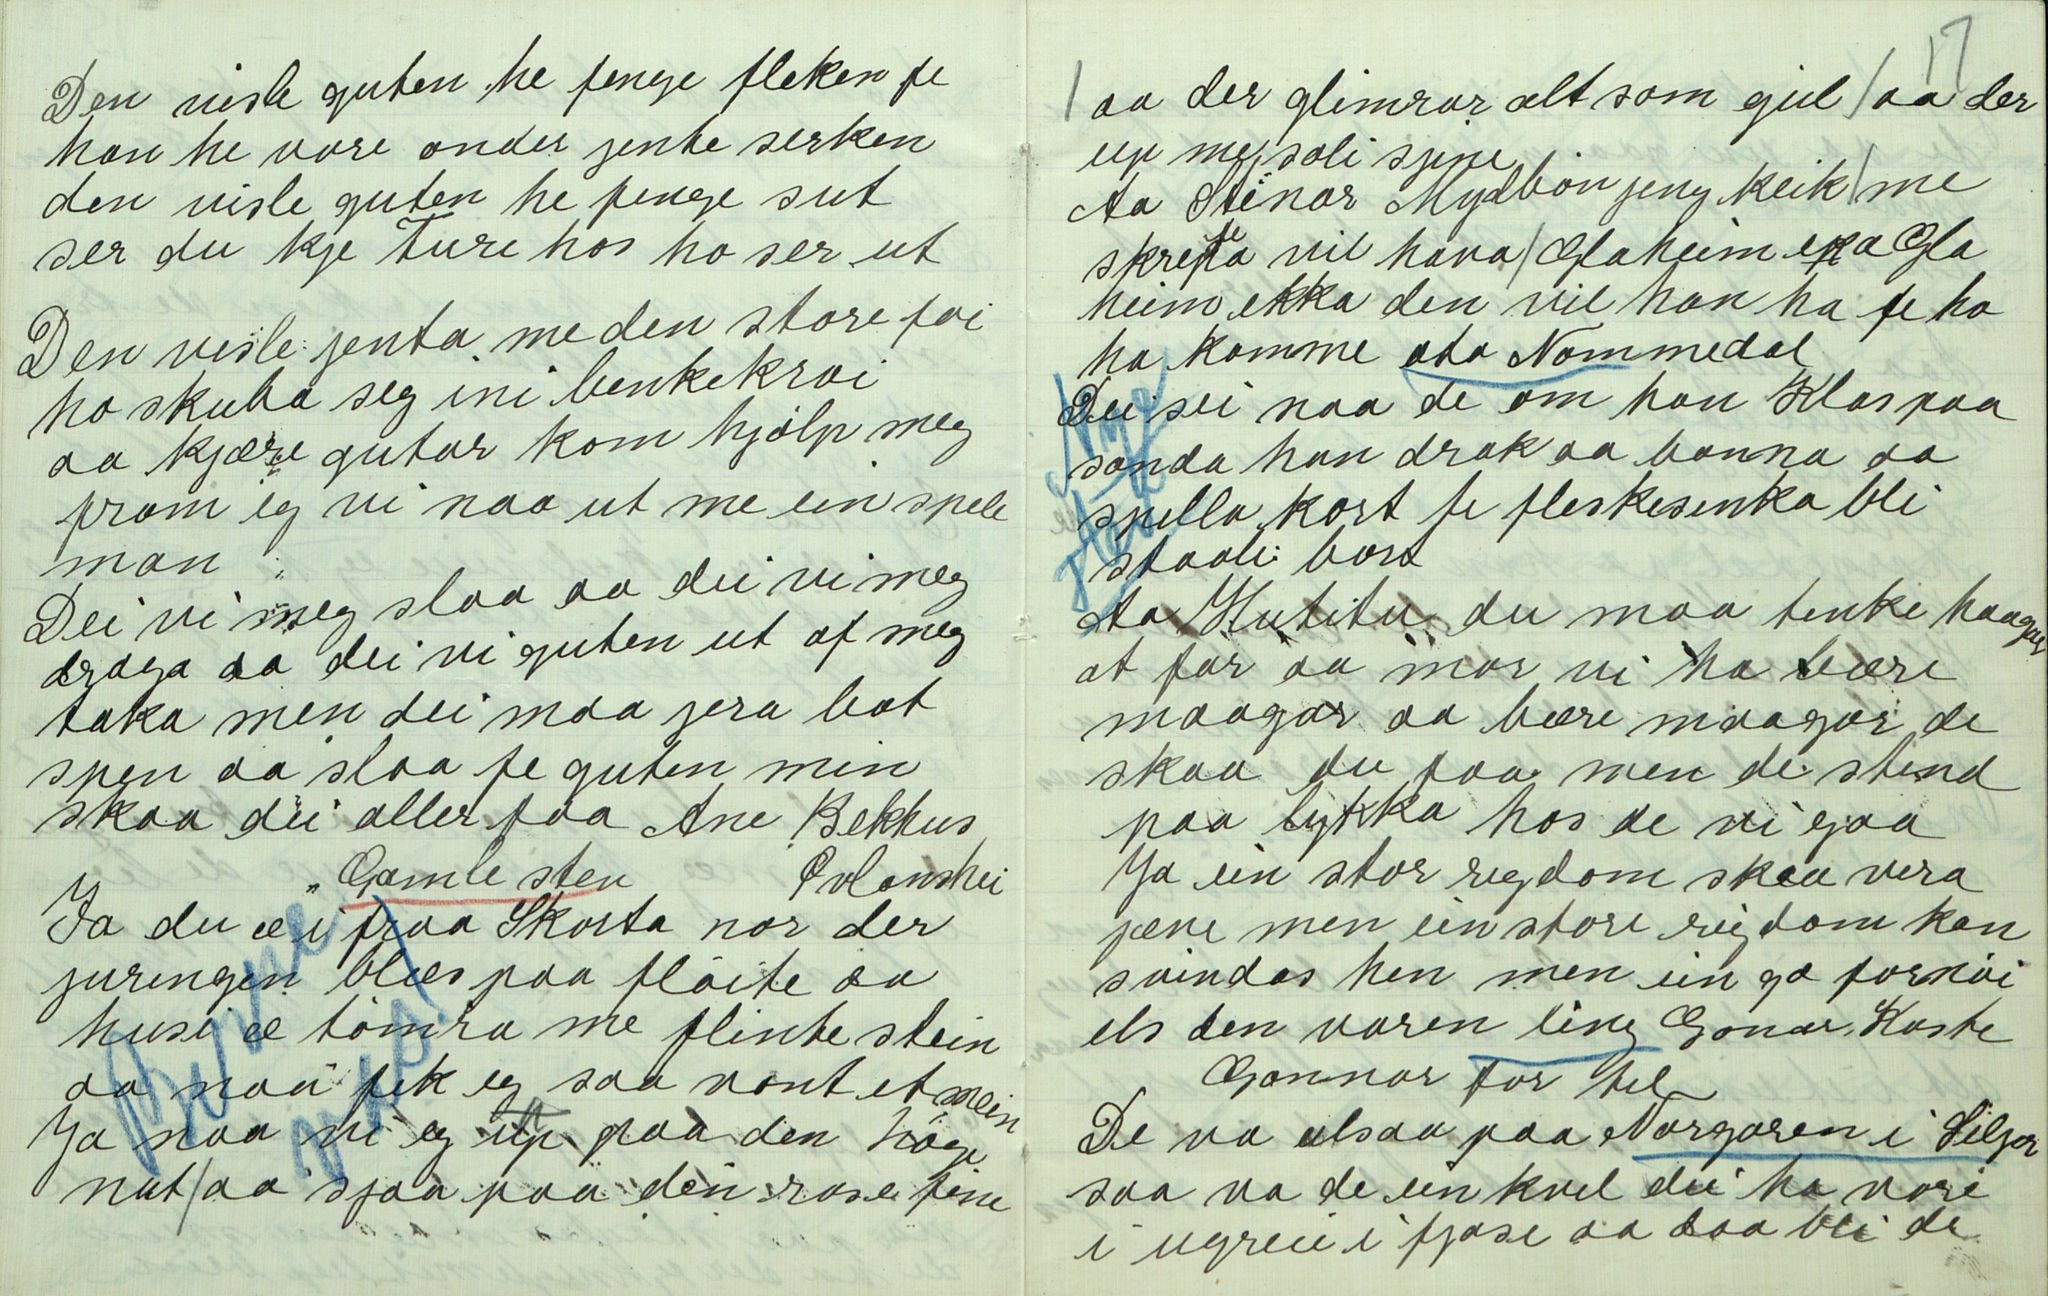 Den visle guten he fenge fleken fe
han he vore onder jente serken
den visle guten he fenge sut
ser du kje Ture hos ho ser ut
Den visle jenta me den store foi
ho skuba seg ini benkekroi
aa kjære gutar kom hjolp meg
fram eg vi naa ut me ein spele
man
Dei vi meg slaa aa dei vi meg
draga aa dei vi guten ut af meg
taka men dei maa jera bat
spen aa slaa fe guten min
skaa dei aller faa Ane Bekhus
Gamle sten
Ja du æ i fraa Skorta nor der
juringen blæs paa flöite aa
husi æ tömra me flinte stein
aa naa fek eg saa vont et mein
Ja naa vi eg up paa den höge
nut/aa sjaa paa den rose fine
17
/ aa der glimrar alt som gul / aa der
up me soli sjine
Aa Steinar Mydbön jeng keik / me
skrefta vil hava / Glaheim ekka Gla
heim ekka den vil han ha fe ho
ha komme ata Nommedal
Dei sei naa de om han Klas paa
sanda han drak aa banna aa
spella kort fe fleskesinka bli
staali bort
Nye
Aa Hutitu du maa tenke haagar
at far aa mor vi ha bære
maagar aa bære maagar de
skaa du faa men de stend
paa lykka hos de vi gaa
Ja ein stor rigdom skaa vera
jæve men ein store rigdom kan
svindas hen men ein go fornöi
els den varen leng Gonar Kaste
Gonnar for tel
De va alsaa paa Norgaren i Siljor
saa va de ein kvel dei ha vori
i ugreie i fjøse aa daa blei de